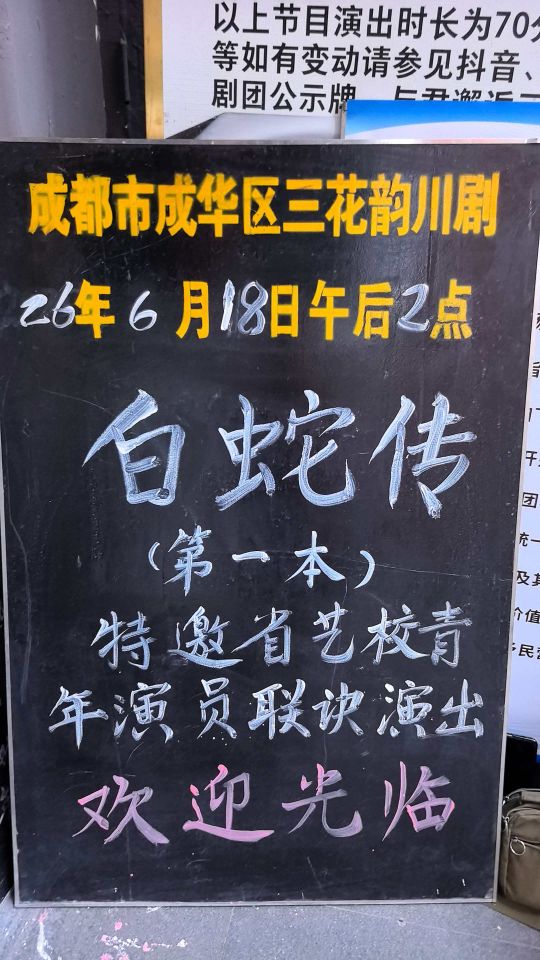 以上节目演出时长为70分
等如有变动请参见抖音、
剧团公示牌
成都市成华区三花韵川剧
26年6月18日午后2点
白蛇传
（第一本）
特邀省艺校青
年演员联诀演出
欢迎光临